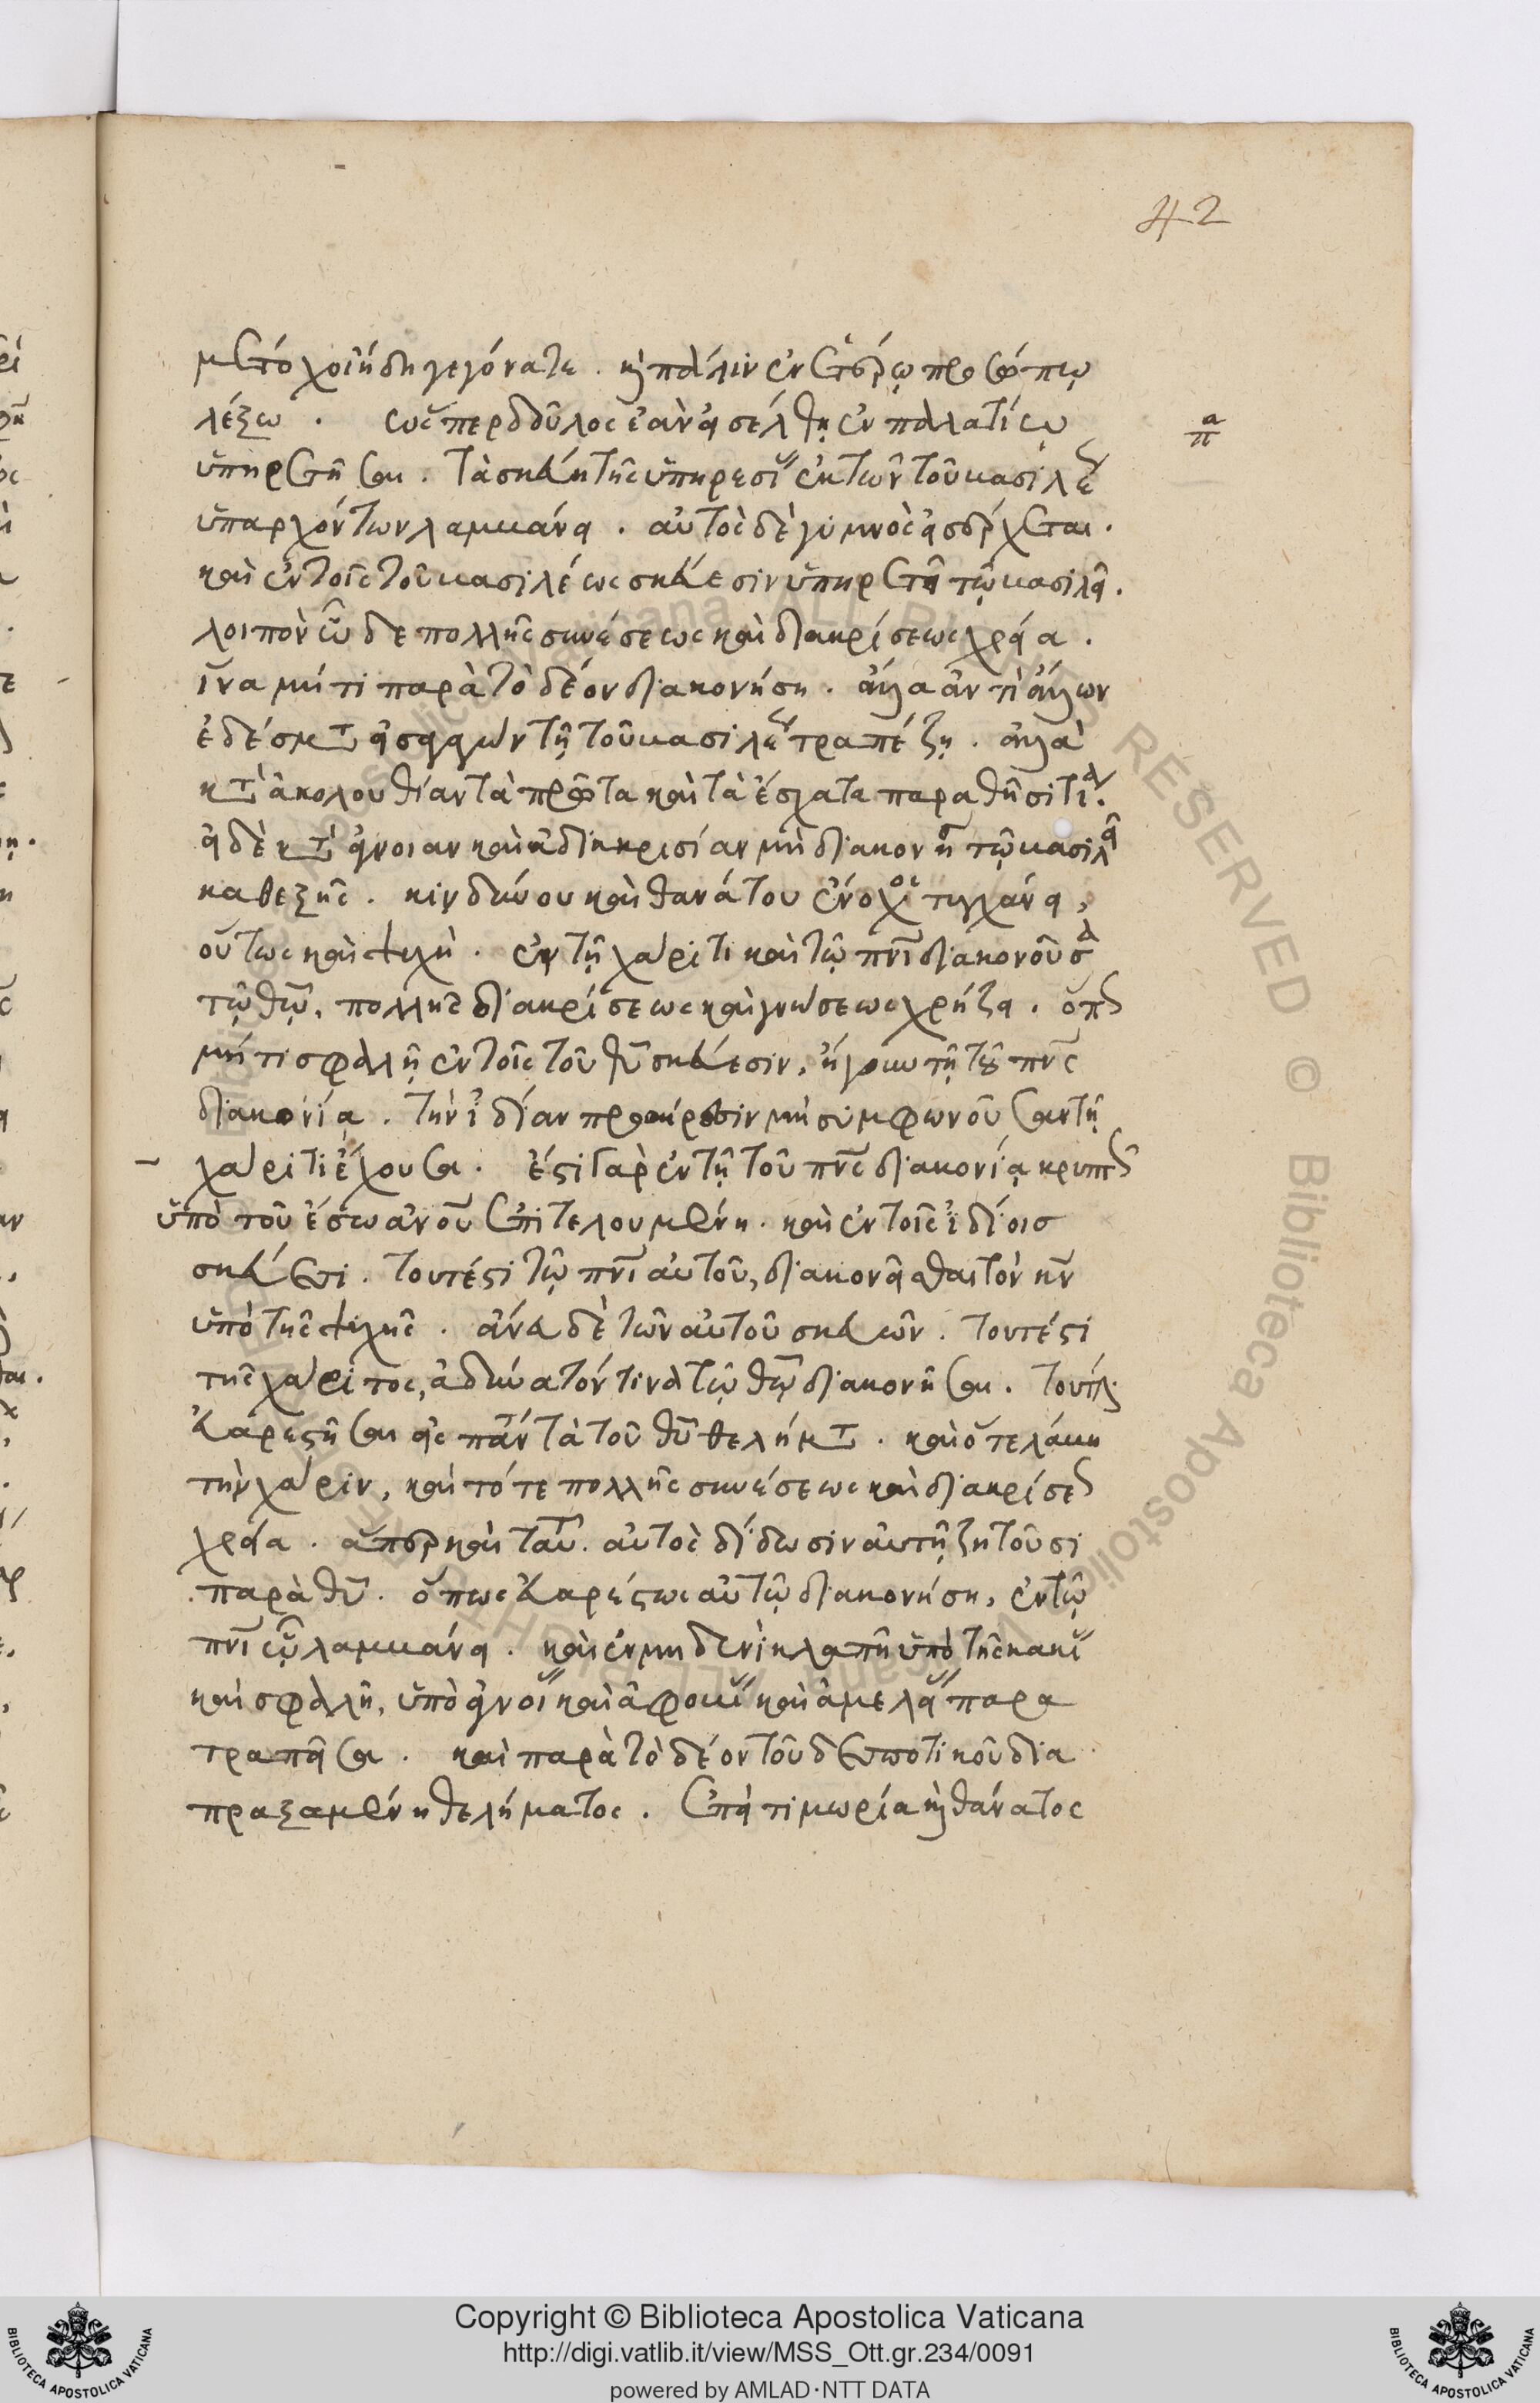 42
μετόχοι ἤδη γεγόνατε. κὶ πάλιν ἐν ἑτέρῳ προσώπῳ
λέξω. ὥσπερ δοῦλος ἐὰν εἰσέλθῃ ἐν παλατίῳ
ὑπηρετῆσαι. τὰ σκεύη τῆς ὑπηρεσί ἐκ τῶν τοῦ βασιλέ
ὑπαρχόντων λαμβάνει. αὐτὸς δὲ γυμνὸς εἰσέρχεται.
καὶ ἐν τοῖς τοῦ βασιλέως σκεύεσιν ὑπηρετεῖ τῷ βασιλεῖ.
λοιπὸν ὧδε πολλῆς συνέσεως καὶ διακρίσεως χρεία.
ἵνα μή τι παρὰ τὸ δέον διακονήση. ἄλλα ἀντὶ ἄλλων
ἐδέσμτ εἰσφέρων τῇ τοῦ βασιλέ τραπέζῃ. ἀλλὰ
κτ ἀκολουθίαν τὰ πρῶτα καὶ τὰ ἔσχατα παραθῆσι τι.
εἰ δὲ κτ ἄγνοιαν καὶ ἀδιακρισίαν μὴ διακονή τῷ βασιλεῖ
καθεξῆς. κινδύνου καὶ θανάτου ἔνοχος τυγχάνει,
οὕτως καὶ ψυχὴ. ἐν τῇ χάριτι καὶ τῷ πνι διακονοῦσα
τῷ θῷ, πολλῆς διακρίσεως καὶ γνώσεως χρήζει. ὅπ
μή τι σφαλῇ ἐν τοῖς τοῦ θυ σκεύεσιν, ἤγουν τῇ τοῦ πνς
διακονίᾳ. τὴν ἰδίαν προαίρεσιν μὴ σύμφωνοῦσαν τῇ
χάριτι ἔχουσα. ἔστι γὰρ ἐν τῇ τοῦ πνς διακονίᾳ κρυπτ
ὑπὸ τοῦ ἔσω ανου ἐπιτελουμένη. καὶ ἐν τοῖς ἰδίοις
σκεύεσι. τουτέστι τῷ πνι αὐτοῦ, διακονεῖσθαι τὸν κν
ὑπὸ τῆς ψυχῆς. ἄνευ δὲ τῶν αὐτοῦ σκευῶν. τουτέστι
τῆς χάριτος, ἀδύνατόν τινὰ τῷ θῷ διακονῆσαι. τουτέστι
εὐαρεστῆσαι εἰς πάντ τὰ τοῦ θυ θελήμτ. καὶ ὅτε λάβη
τὴν χάριν, καὶ τότε πολλῆς συνέσεως καὶ διακρίσε
χρεία. ἅπερ καὶ ταῦτ. αὐτὸς δίδωσιν αὐτῇ ζητοῦσι
παρὰ θυ. ὅπως εὐαρέστως αὐτῷ διακονήση, ἐν τῷ
πνι ᾧ λαμβάνει. καὶ ἐν μηδενὶ κλαπῆ ὑπὸ τῆς κακί
καὶ σφαλῆ, ὑπὸ ἀγνοί καὶ ἀφοβί καὶ ἀμελεί παρα
τραπεῖσα. καὶ παρὰ τὸ δέον τοῦ δεσποτικοῦ δια
πραξαμένη θελήματος. ἐπεὶ τιμωρία κὶ θάνατος
Copyright © Biblioteca Apostolica Vaticana
http://digi.vatlib.it/view/MSS_Ott.gr.234/0091
powered by AMLAD·NTT DATA